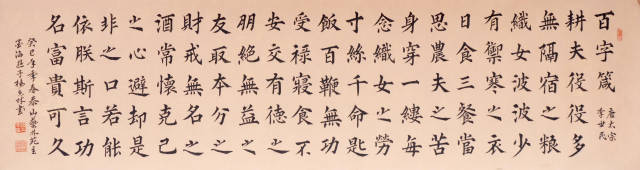 百字箴
唐太宗
李世民
耕夫役役多
無隔宿之粮
織女波波少
有禦寒之衣
日食三餐當
思農夫之苦
身穿一縷每
念織女之勞
寸絲千命匙
飯百鞭無功
受祿寢食不
安交有德之
朋絕無益之
友取本分之
財戒無名之
酒常懷克己
之心避却是
非之口若能
依朕斯言功
名富貴可久
癸巳年季春泰山
墨海遊子楊林書